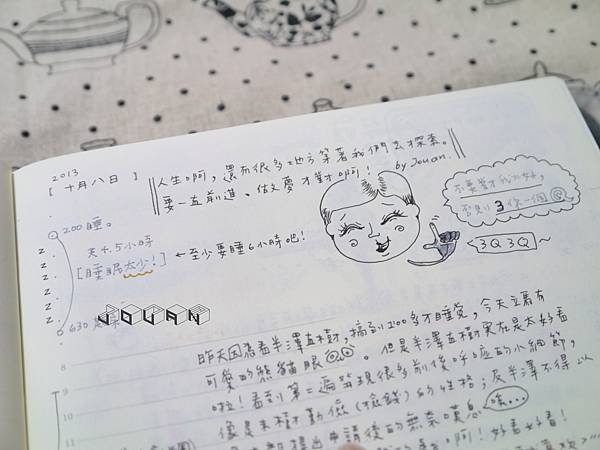 2013
[ 十月八日 ]
人生啊，還有很多地方等著我們去探索。
要一直前進、做夢才對啊！
by Jouan.
200睡。
共4.5小時
[睡眠太少！]
←至少要睡6小時吧！
630
3Q 3Q ~
JOUAN
昨天因為看半澤直樹，搞到200多才睡覺，今天立馬有
可愛的熊貓眼。但是半澤直樹實在是太好看
啦！看到第二遍發現很多前後呼應的小細節，
像是直樹勤儉(撿錢)的性格；及半澤不得以
提出申請後的無奈嘆息
唉…
啊！好看好看！
8
9
10
11